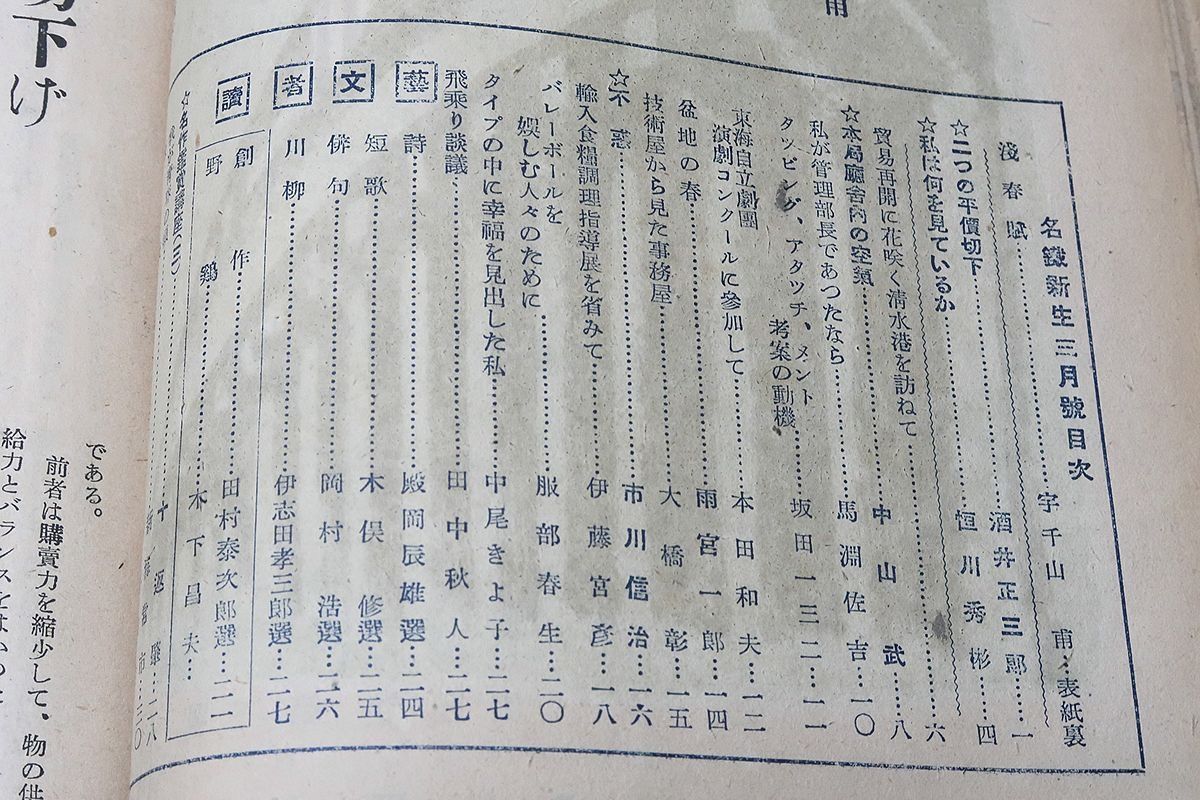 用
名鐵新生三月號目次
淺春賦……宇千山甫…表紙裏
☆二つの平價切下……酒井正三郎…一
☆私は何を見ているか……恒川秀彬…四
貿易再開に花咲く清水港を訪ねて……六
☆本局廳舍内の空氣……中山武…八
私が管理部長であつたなら……馬淵佐吉…一〇
タッピング、アタッチ、メント
考案の動機……坂田一三二…一一
東海自立劇團
演劇コンクールに參加して……本田和夫…一二
盆地の春……雨宮一郎…一四
技術屋から見た事務屋……大橋彰…一五
☆不惑……市川信治…一六
輸入食糧調理指導展を省みて……伊藤宮彦…一八
バレーボールを
娯しむ人々のために……服部春生…二〇
タイプの中に幸福を見出した私……中尾きよ子…二七
飛乘り談議……田中秋人…二七
讀者文藝
詩……殿岡辰雄選…二四
短歌……木俣修選…二五
俳句……岡村浩選…二六
川柳……伊志田孝三郎選…二七
創作……田村泰次郎選…二一
野鷄……木下昌夫…
切下げ
である。
前者は購賣力を縮少して、物の供
給力とバランスを